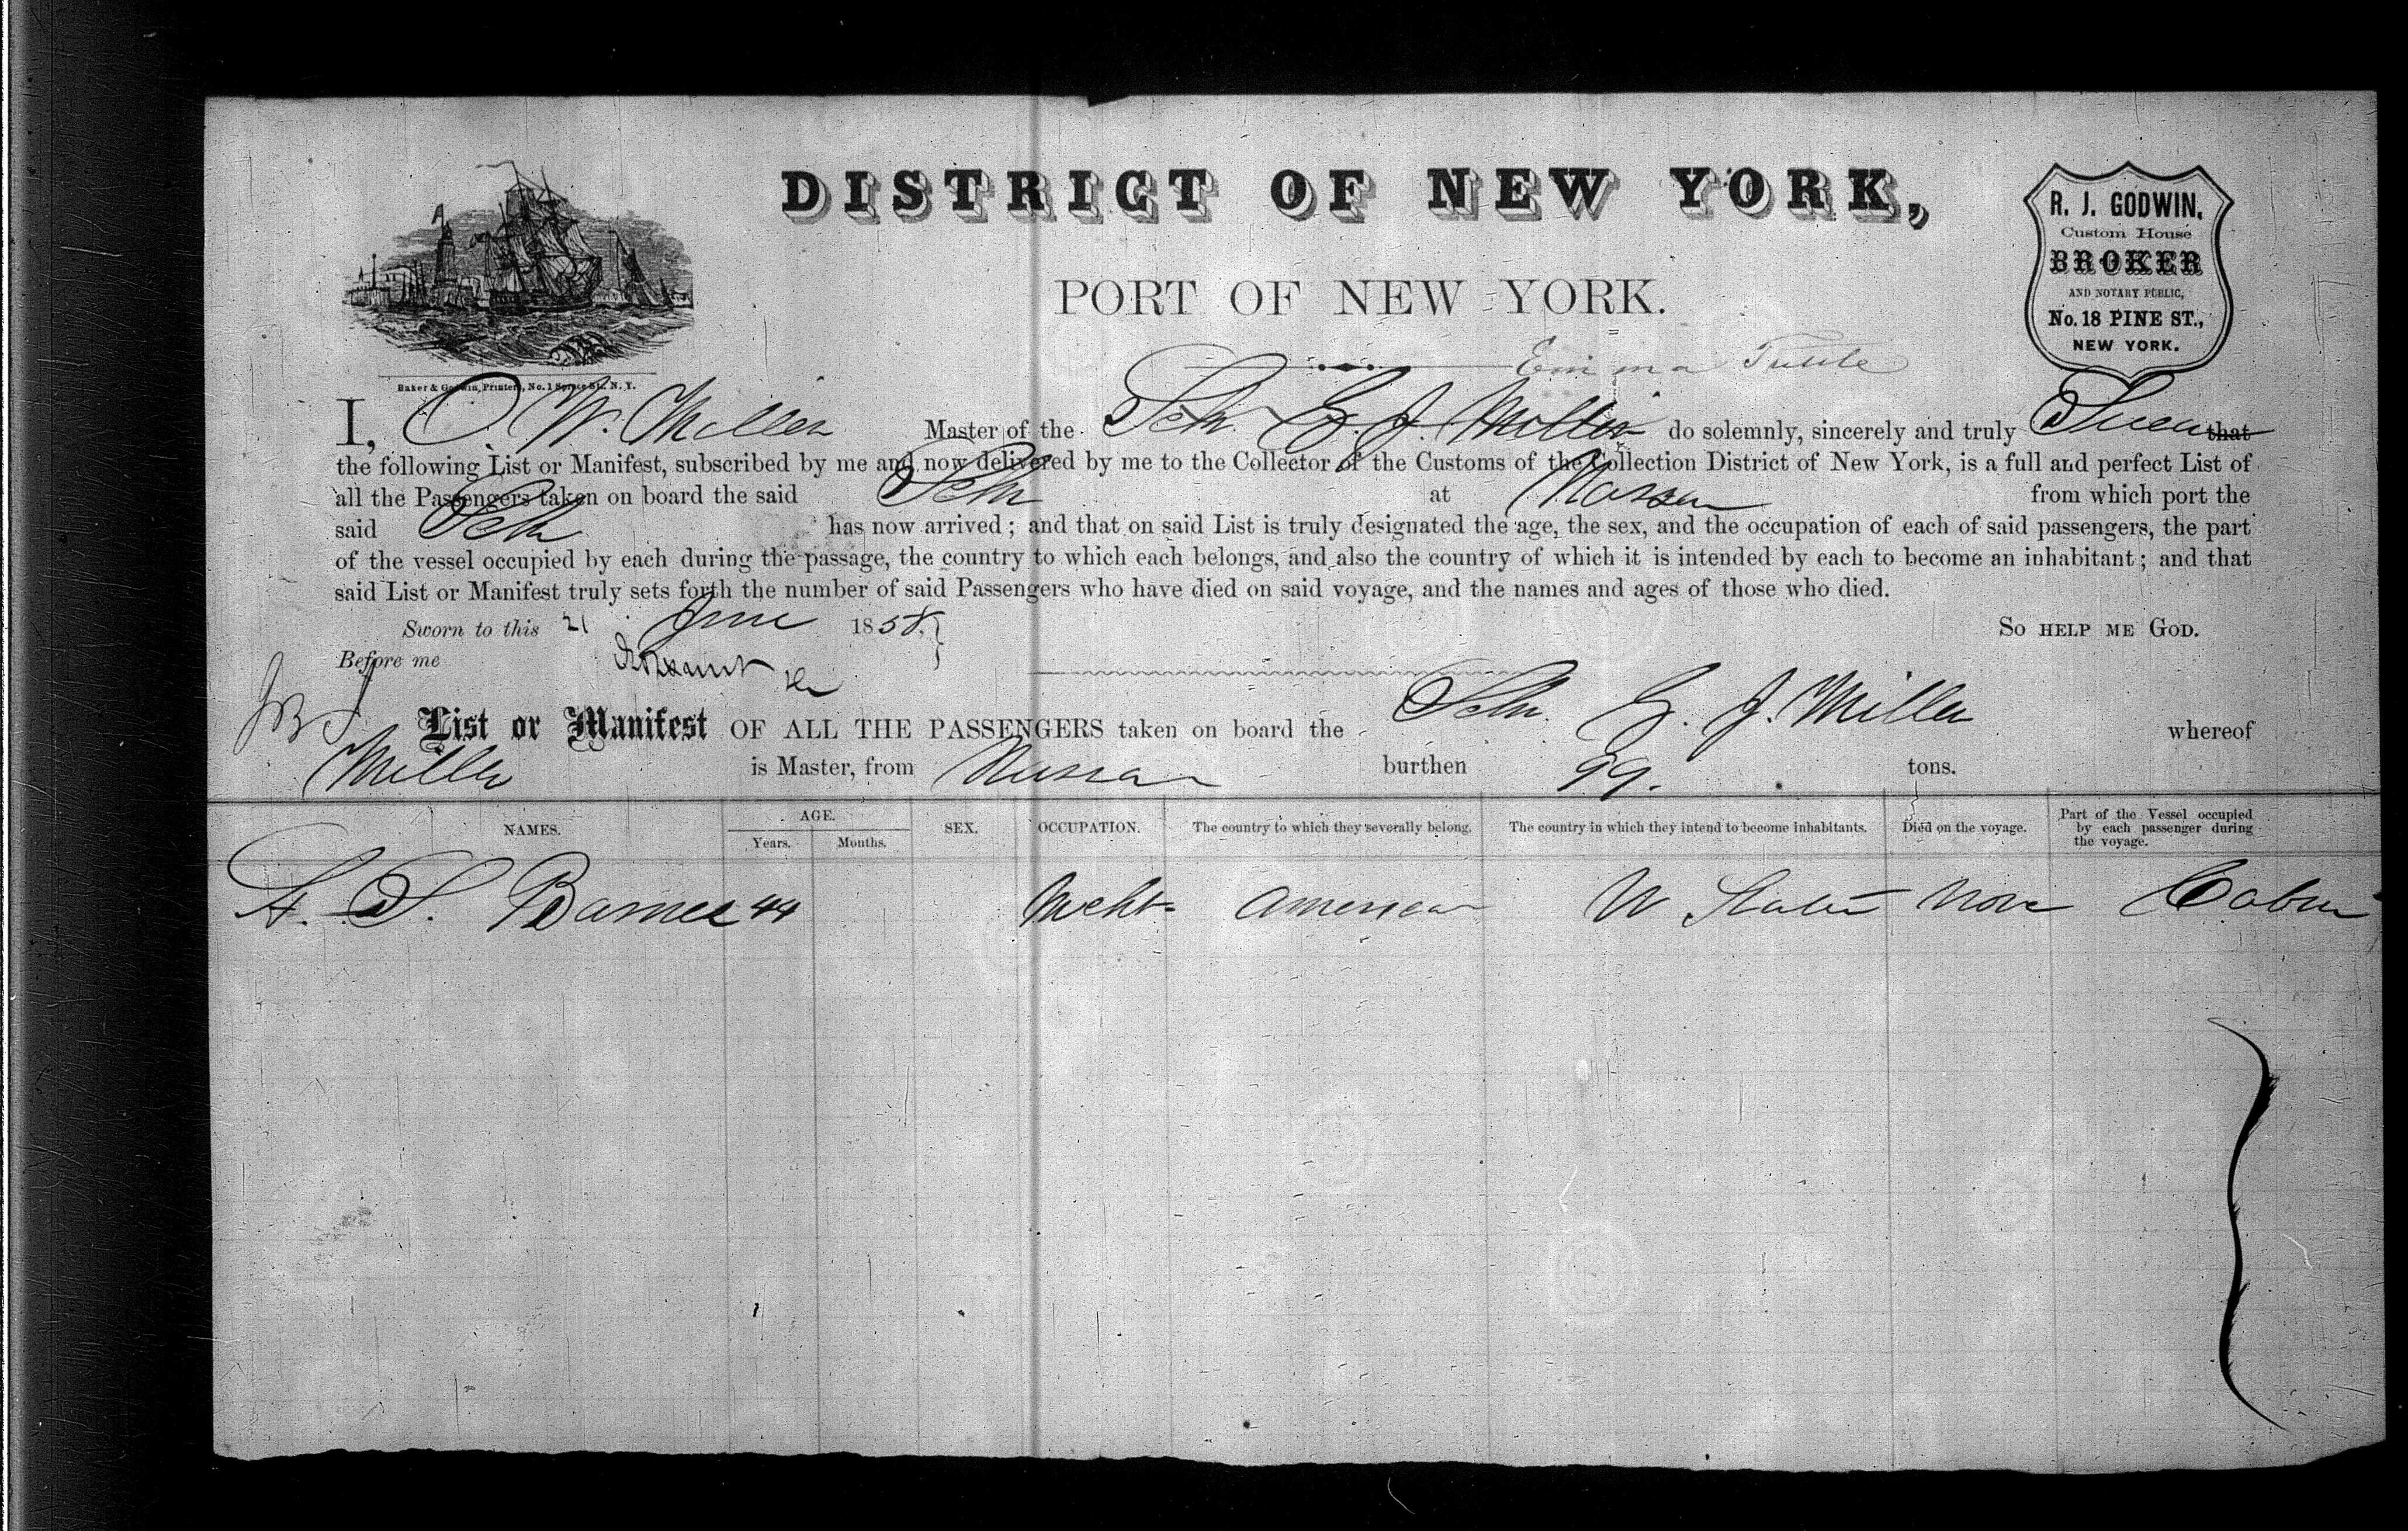 DISTRICT OF NEW YORK,
PORT OF NEW YORK.
R. J. GODWIN,
Custom House
BROKER
AND NOTARY PUBLIC,
No. 18 PINE ST.,
NEW YORK.
Baker & Godwin, Printers, No. 1 Spruce St. N. Y.
Emma Tuttle
I, O. W. Miller Master of the Schr. E. J. Miller do solemnly, sincerely and truly Swear that
the following List or Manifest, subscribed by me and now delivered by me to the Collector of the Customs of the Collection District of New York, is a full and perfect List of
all the Passengers taken on board the said Schr at Nassau from which port the
said Schr has now arrived; and that on said List is truly designated the age, the sex, and the occupation of each of said passengers, the part
of the vessel occupied by each during the passage, the country to which each belongs, and also the country of which it is intended by each to become an inhabitant; and that
said List or Manifest truly sets forth the number of said Passengers who have died on said voyage, and the names and ages of those who died.
Sworn to this 21 June 1858. So HELP ME GOD.
Before me
List or Manifest OF ALL THE PASSENGERS taken on board the Schr. E. J. Miller whereof
Miller is Master, from Nassau burthen 99. tons.
NAMES. AGE. SEX. OCCUPATION. The country to which they severally belong. The country in which they intend to become inhabitants. Died on the voyage. Part of the Vessel occupied by each passenger during the voyage.
Years. Months.
S. Barnes 44 Mcht American U States None Cabin